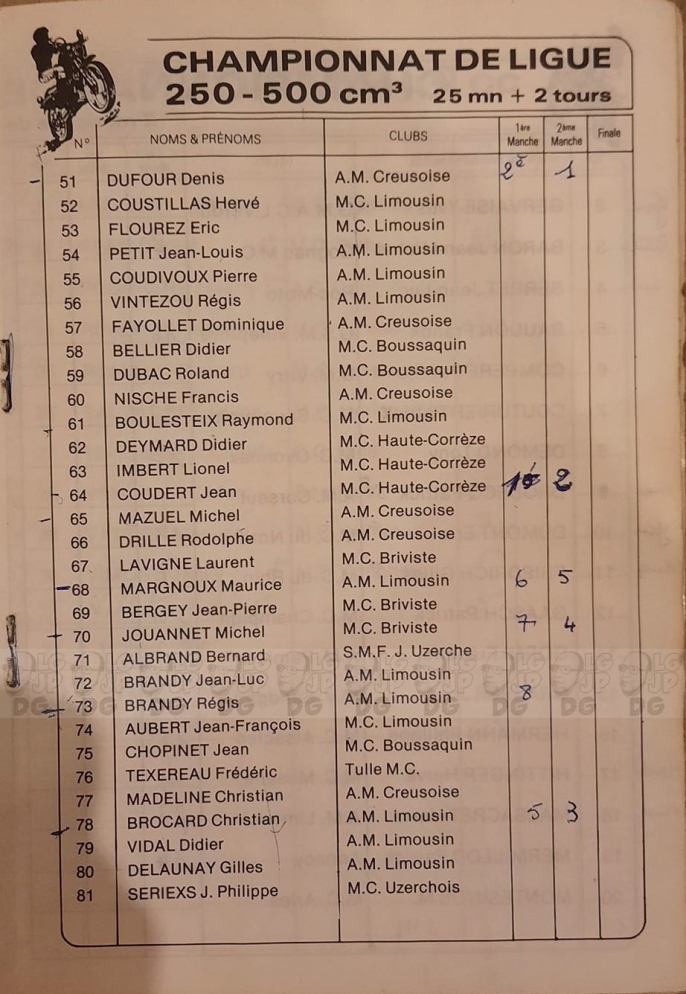 CHAMPIONNAT DE LIGUE
250 - 500 cm³ 25 mn + 2 tours
N° NOMS & PRÉNOMS CLUBS 1ère Manche 2ème Manche Finale
51 DUFOUR Denis A.M. Creusoise 2è 1
52 COUSTILLAS Hervé M.C. Limousin
53 FLOUREZ Eric M.C. Limousin
54 PETIT Jean-Louis A.M. Limousin
55 COUDIVOUX Pierre A.M. Limousin
56 VINTEZOU Régis A.M. Limousin
57 FAYOLLET Dominique A.M. Creusoise
58 BELLIER Didier M.C. Boussaquin
59 DUBAC Roland M.C. Boussaquin
60 NISCHE Francis A.M. Creusoise
61 BOULESTEIX Raymond M.C. Limousin
62 DEYMARD Didier M.C. Haute-Corrèze
63 IMBERT Lionel M.C. Haute-Corrèze
64 COUDERT Jean M.C. Haute-Corrèze 2
65 MAZUEL Michel A.M. Creusoise
66 DRILLE Rodolphe A.M. Creusoise
67 LAVIGNE Laurent M.C. Briviste
68 MARGNOUX Maurice A.M. Limousin 6 5
69 BERGEY Jean-Pierre M.C. Briviste
70 JOUANNET Michel M.C. Briviste 7 4
71 ALBRAND Bernard S.M.F. J. Uzerche
72 BRANDY Jean-Luc A.M. Limousin
73 BRANDY Régis A.M. Limousin 8
74 AUBERT Jean-François M.C. Limousin
75 CHOPINET Jean M.C. Boussaquin
76 TEXEREAU Frédéric Tulle M.C.
77 MADELINE Christian A.M. Creusoise
78 BROCARD Christian A.M. Limousin 5 3
79 VIDAL Didier A.M. Limousin
80 DELAUNAY Gilles A.M. Limousin
81 SERIEXS J. Philippe M.C. Uzerchois